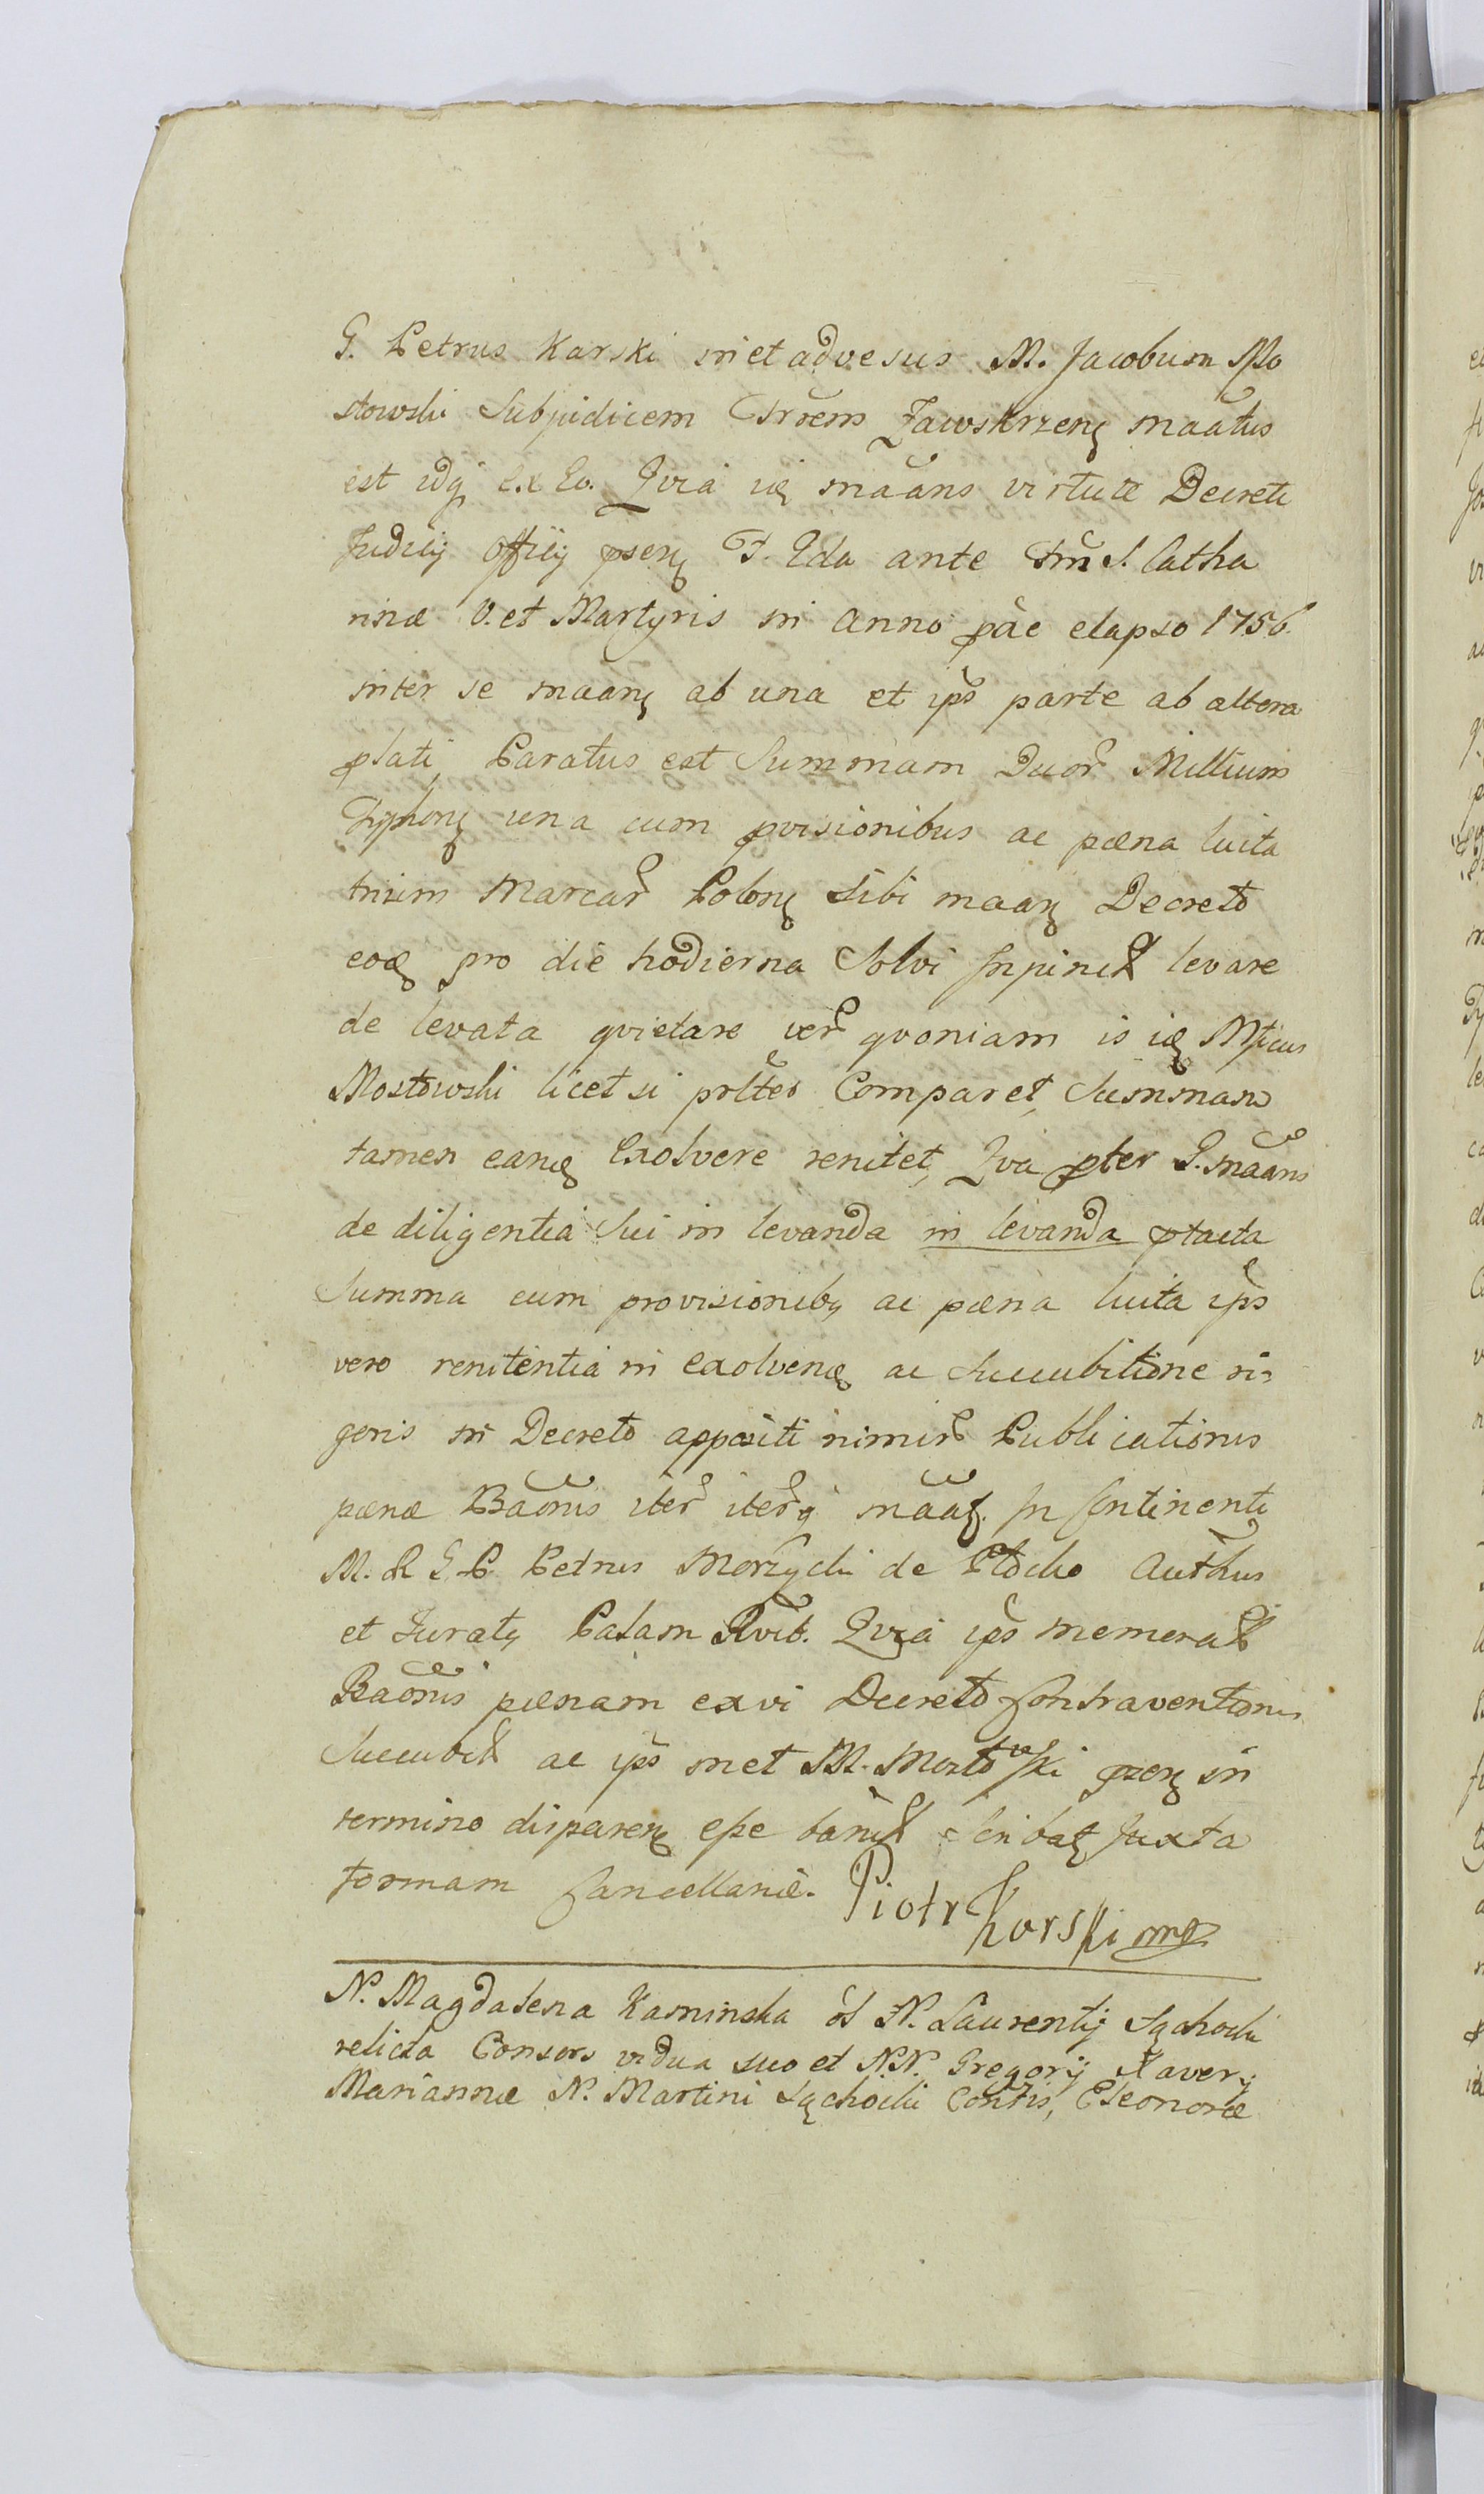 G. Petrus Karski in et advesus M. Jacobum Mo
stowski Subjudicem Trrem Zawskrzen maatus
est idq ex Eo. Qvia ie maans virtute Decreti
Judicij Officij psen F. 2da ante Fm S. Catha
rinæ V. et Martyris in Anno pae elapso 1756.
inter se maan ab una et ips parte ab altera
plati, Paratus est Summam Duor Millium
Typhon una cum pvisionibus ac pæna luita
trium Marcar Polon Sibi maan Decreto
eod pro die hodierna Solvi Injunct levare
de levata qvietare ver qvoniam is id Mficus
Mostowski licet si prltter Comparet, Summam
tamen eand Exolvere renitet, Qva pter G. maans
de diligentia Sui in levanda in levanda ptacta
Summa cum provisionibq ac pæna luita ips
vero renitentia in exolvend ac Succubitione ri=
goris in Decreto appositi nimir Publicationis
pænæ Baonis iter iterq maat. In Continenti
M. R. G. P. Petrus Morzycki de Plocko Authus
et Juratq Palam Rvit. Qvia ips memorat
Baonis pænam ex vi Decreto Contraventionis
Succubit ac ips met M. Mostowski pzen in
termino disparen esse banit Scribat Juxta
formam Cancellariæ. Piotr Karski mp
N. Magdalena Kaminska ol N. Laurentij Sąchocki
relicta Consors vidua suo et NN. Gregorij Xaverij
Mariannæ N. Martini Sąchocki Contis, Eleonoræ